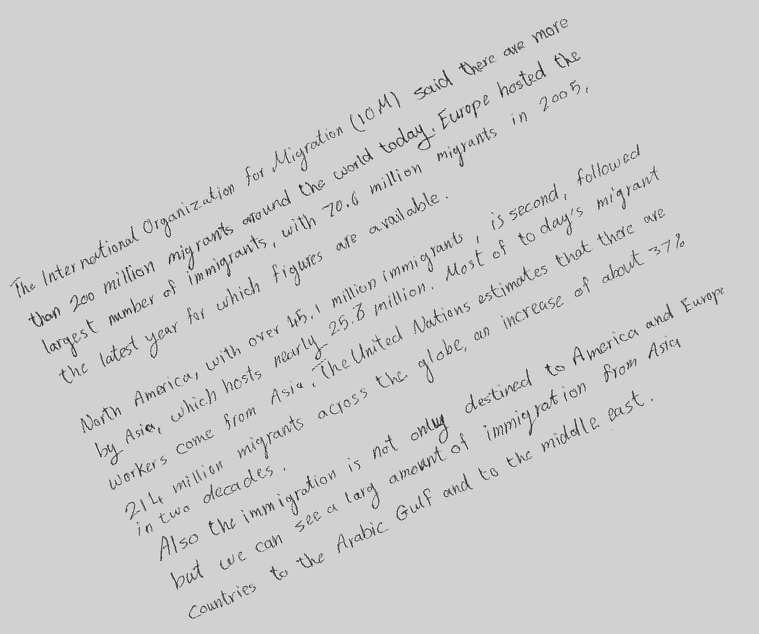 The International Organization for Migration (IOM) said there are more
than 200 million migrants around the world today. Europe hosted the
largest number of immigrants, with 70.6 million migrants in 2005,
the latest year for which figures are available.
North America, with over 45.1 million immigrants, is second, followed
by Asia, which hosts nearly 25.3 million. Most of to day's migrant
workers come from Asia. The United Nations estimates that there are
214 million migrants across the globe, an increase of about 37%
in two decades.
Also the immigration is not only destined to America and Europe
but we can see a larg amount of immigration from Asia
Countries to the Arabic Gulf and to the middle east.